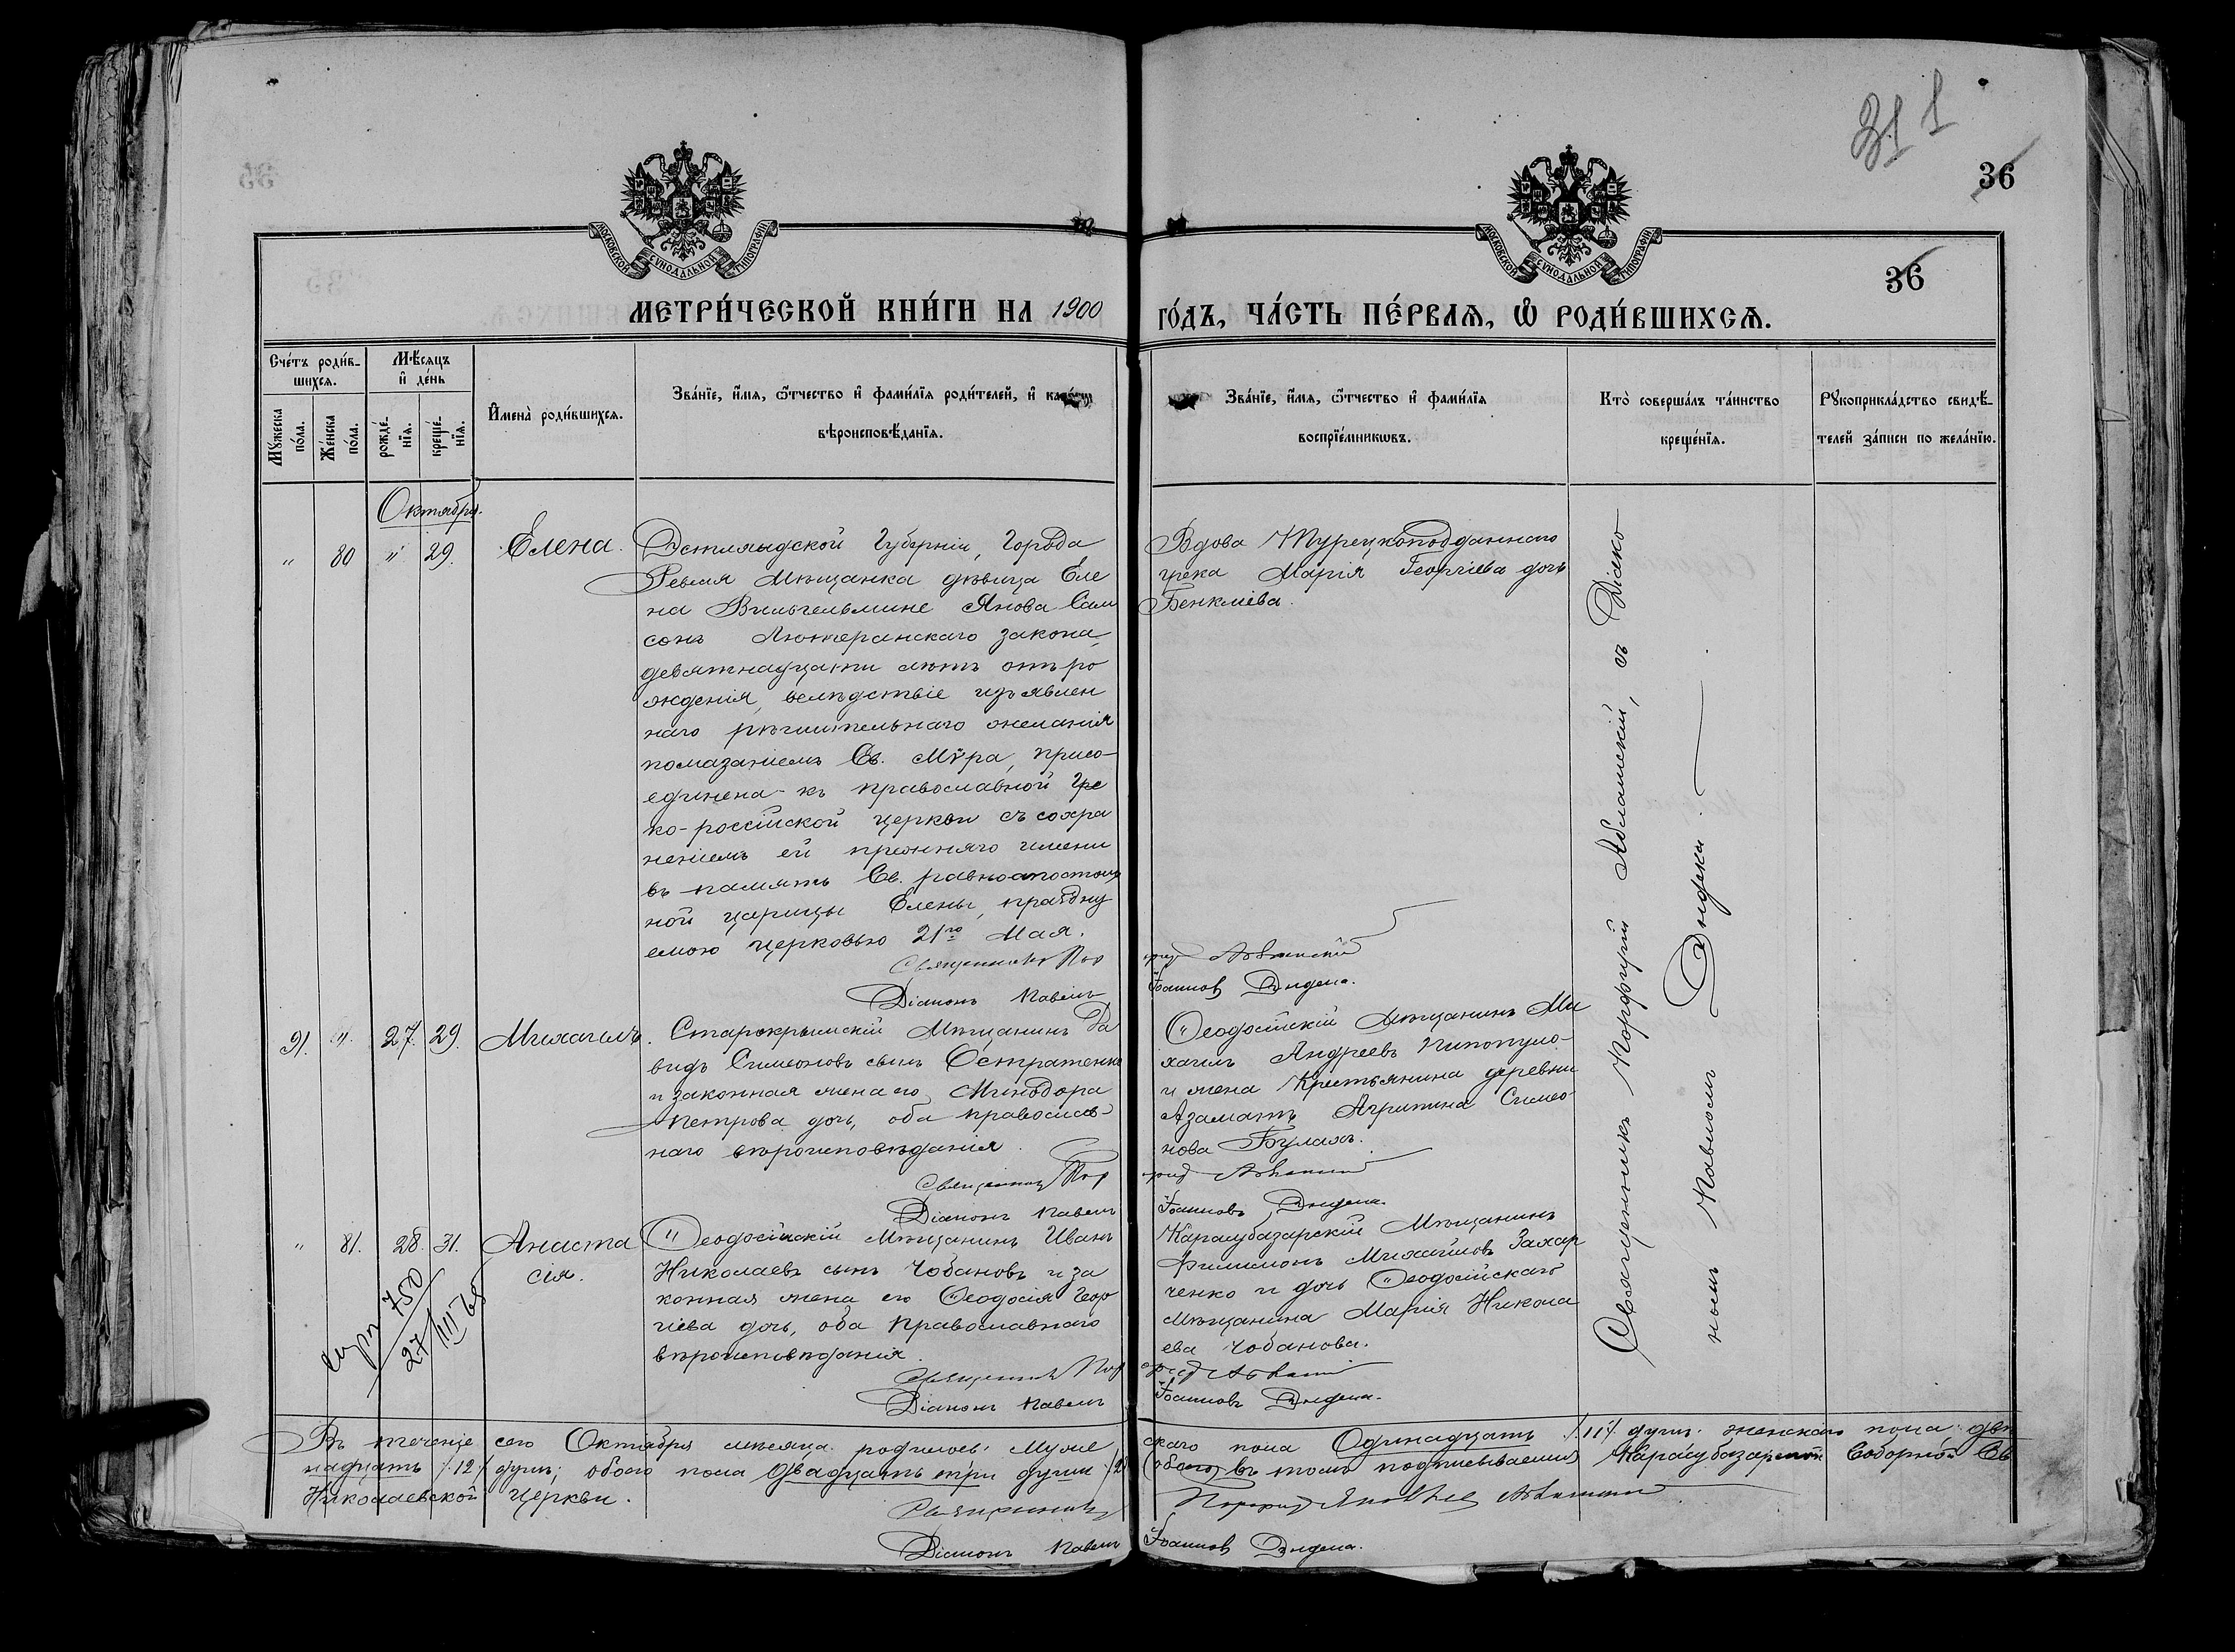 311
36
МОСКОВСКОЙ СѴНОДАЛЬНОЙ ТИПОГРАФІИ
МОСКОВСКОЙ СѴНОДАЛЬНОЙ ТИПОГРАФІИ
36
МЕТРИ́ЧЕСКОЙ КНИ́ГИ НА 1900 ГО́ДЪ, ЧА́СТЬ ПЕ́РВАѦ, Ѡ РОДИ́ВШИХСѦ.
Сче́тъ роди́в-
шихсѧ.
Мꙋжеска по́ла.
Же́нска по́ла.
Мѣ́сѧцъ
и҆ де́нь
рожде́-
нїѧ.
креще́-
нїѧ.
И҆мена̀ роди́вшихсѧ.
Зва́нїе, и҆́мѧ, ѻ҆́тчество и҆ фами́лїѧ роди́телей, и҆
вѣроисповѣ́данїѧ.
Зва́нїе, и҆́мѧ, ѻ҆́тчество и҆ фами́лїѧ
воспрїе́мникѡвъ.
Кто̀ соверша́лъ та́инство
креще́нїѧ.
Рꙋкоприкла́дство свидѣ́-
телей за́писи по жела́нїю.
Октября.
" 80 " 29. Елена.
Эстляндской Губерніи, Города
Ревеля Мѣщанка дѣвица Еле
на Вильгельмине Янова Сам
сонъ Лютеранскаго закона,
девятнадцати лѣтъ отъ ро
жденія, вслѣдствіе изъявлен
наго рѣшительнаго желанія
помазаніемъ Св. Мѵра, присо-
единена къ православной Гре
ко-россійской церкви съ сохра
неніемъ ей прежняго имени
въ память Св. равноапостоль
ной царицы Елены, праздну
емою церковью 21го Мая.
Священникъ Пор
Діаконъ Павелъ
Вдова Турецкоподданнаго
грека Марія Георгіева дочь
Бенкліева.
Іоанновъ
91. " 27. 29. Михаилъ.
Старокрымскій Мѣщанинъ Да
видъ Симеоновъ сынъ Остратенко
и законная жена его Минодора
Петрова дочь, оба православ-
наго вѣроисповѣданія.
Священникъ Пор
Діаконъ Павелъ
Ѳеодосійскій Мѣщанинъ Ми
хаилъ Андреевъ Пипопуло
и жена Крестьянина деревни
Азаматъ Агрипина Симео
нова Булахъ.
Іоанновъ
" 81. 28. 31. Анаста
сія.
Ѳеодосійскій Мѣщанинъ Иванъ
Николаевъ сынъ Чобановъ и за
конная жена его Ѳеодосія Геор
гіева дочь, оба Православнаго
вѣроисповѣданія.
Священникъ Пор
Діаконъ Павелъ
Карасубазарскій Мѣщанинъ
Филимонъ Михайловъ Захар
ченко и дочь Ѳеодосійскаго
Мѣщанина Марія Никола
ева Чобанова.
Іоанновъ
750
27/III 65
Священникъ Порфирій, съ Діако
номъ Павломъ
Въ теченіе сего Октября мѣсяца родилось: Муже
скаго пола Одинадцать /11/ душъ женскаго пола: две
надцать /12/ душъ; обоего пола двадцать три души
въ томъ подписываемся Карасубазарской Соборной Св
Николаевской Церкви.
Священникъ
Діаконъ Павелъ Іоанновъ